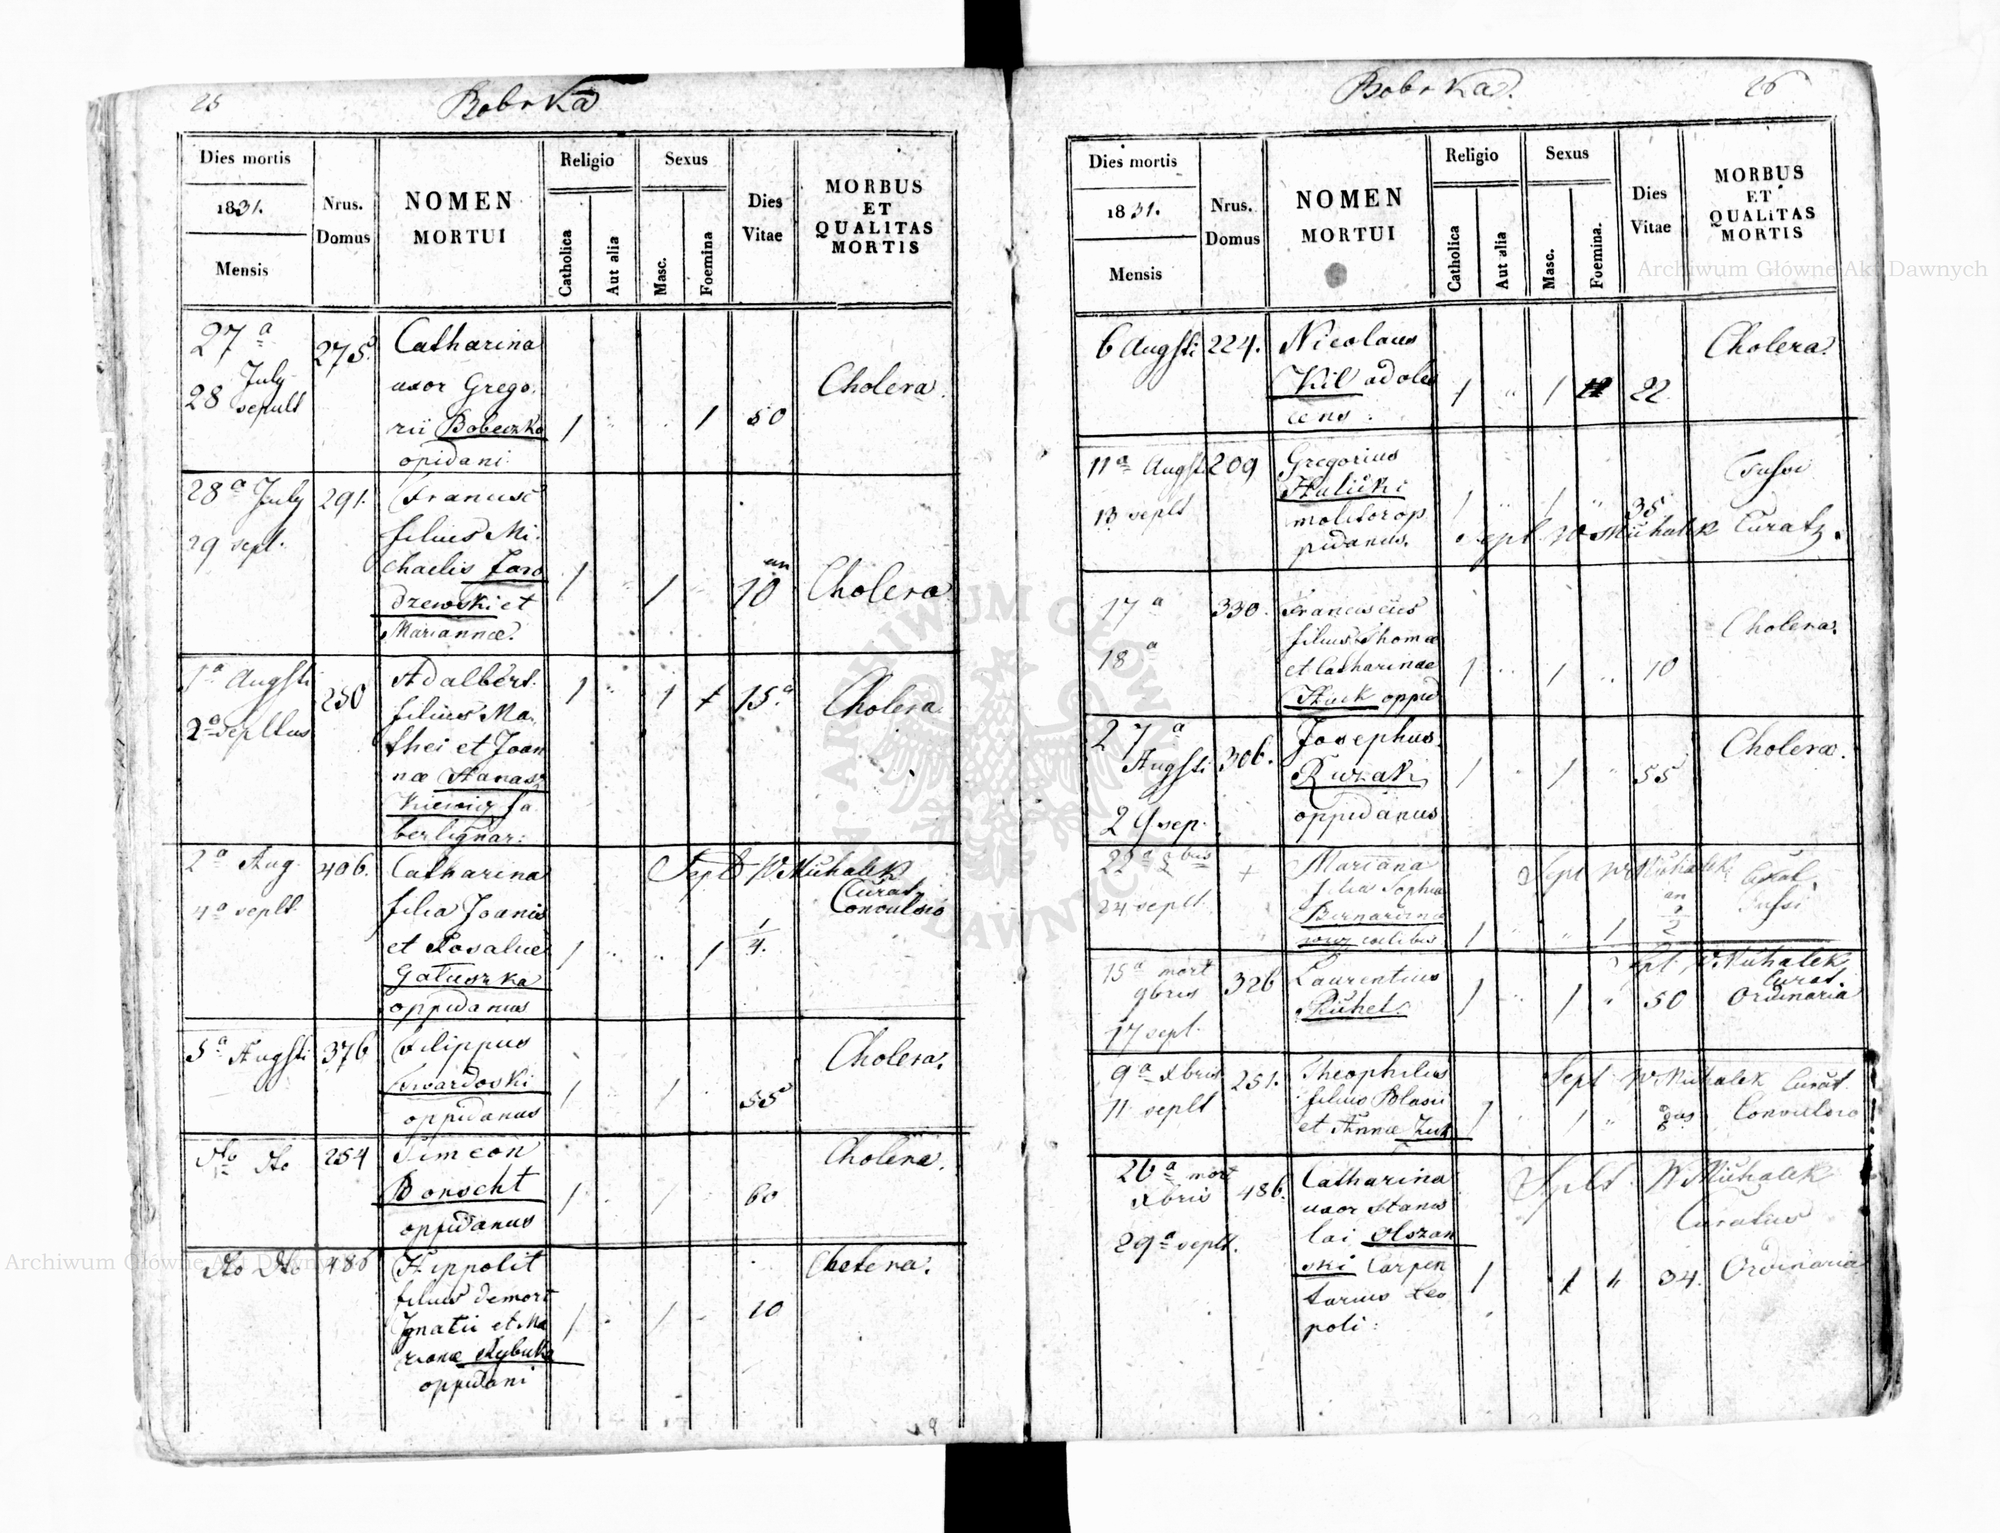 25
Bobrka
Dies mortis
1831.
Mensis
Nrus.
Domus
NOMEN
MORTUI
Religio
Catholica
Aut alia
Sexus
Masc.
Foemina
Dies
Vitae
MORBUS
ET
QUALITAS
MORTIS
27a
July
28 sepult
275.
Catharina
uxor Grego.
rii Bobeczko
opidani.
1
1
50
Cholera.
28a July
29 sept.
291.
filius Mi.
chaelis Jaro
dzewski et
Mariannæ.
1
1
10
Cholera
1a Augsti
2a sepltus
250
Adalbert.
filius Ma.
thei et Joan
næ Hanas
kiewicz fa
berlignar:
1
1
15.a
Cholera.
2a Aug.
4a seplt.
406.
Catharina
filia Joanis
et Rosaliæ
Gałuszka
oppidanus
1
1
1/4.
Sept W Michalek
Curat
Convulsio
5a Augsti
376
Filippus
Twardoski
oppidanus
1
1
55
Cholera.
254
Simeon
Borscht
oppidanus
1
1
60
Cholera.
486
Hippolit
filius demort
Ignatii et Ma
rianæ Rybicka
oppidani
1
1
10
Cholera.
Bobrka.
26
Dies mortis
1831.
Mensis
Nrus.
Domus
NOMEN
MORTUI
Religio
Catholica
Aut alia
Sexus
Masc.
Foemina.
Dies
Vitae
MORBUS
ET
QUALITAS
MORTIS
6 Augsti
224.
Nicolaus
Kil adoles
cens :
1
1
22
Cholera.
11a Augsti
13 seplt
209
Gregorius
Halicki
molitor op
pidanus.
1
1
35
Tussi
Sept W Michalek Curatz.
17a
18a
330.
Franciscus
filius Thomæ
et Catharinæ
Huk oppid
1
1
10
Cholera.
27a
Augsti
29 sep.
306.
Josephus.
Ruzak
oppidanus
1
1
55
Cholera.
24 seplt.
+
Mariana
filia Sophiæ
1
1
an
Sept W Michalek Curat.
Tussi
15a mort
9bris
17 sept.
326
Laurentius
Kuhel.
1
1
50
Sept W Michalek
Curat.
Ordinaria
9a Xbris
11 seplt
251.
Theophilus
filius Blasii
et Annæ Zuk
1
1
Sept W Michalek Curat.
Convulsio
26a mort
Xbris
29a seplt.
486.
Catharina
uxor Stanis
lai Olszan
ski Carpen
tarius Leo
poli :
1
1
34.
Seplt W Michalek
Curatus
Ordinaria
Archiwum Główne Akt Dawnych
Archiwum Główne Akt Dawnych
ARCHIWUM GŁÓWNE AKT DAWNYCH